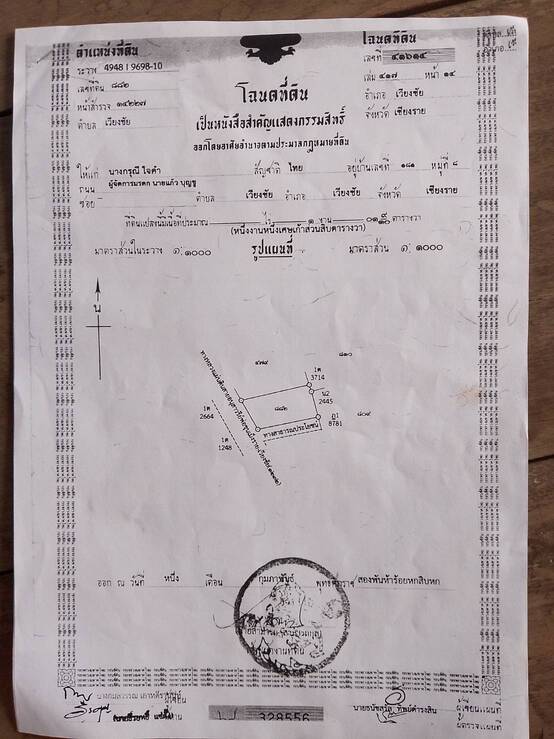 ตำแหน่งที่ดิน
ระวาง 4948 I 9698-10
เลขที่ดิน ๘๘๒
หน้าสำรวจ ๑๔๒๒๗
ตำบล เวียงชัย
โฉนดที่ดิน
เลขที่ ๔๑๖๑๔
เล่ม ๔๑๗ หน้า ๑๔
อำเภอ เวียงชัย
จังหวัด เชียงราย
โฉนดที่ดิน
เป็นหนังสือสำคัญแสดงกรรมสิทธิ์
ออกโดยอาศัยอำนาจตามประมวลกฎหมายที่ดิน
ให้แก่ นางกรุณี ใจดำ สัญชาติ ไทย อยู่บ้านเลขที่ ๑๘๑ หมู่ที่ ๘
ถนน ผู้จัดการมรดก นายแก้ว บุญชู
ซอย ตำบล เวียงชัย อำเภอ เวียงชัย จังหวัด เชียงราย
ที่ดินแปลงนี้มีเนื้อที่ประมาณ ไร่ ๑ งาน ตารางวา
(หนึ่งงานหนึ่งเศษเก้าส่วนสิบตารางวา)
มาตราส่วนในระวาง ๑:๑๐๐๐ รูปแผนที่ มาตราส่วน ๑:๑๐๐๐
น
๔๗๙
๘๑๐
1ต
3714
น2
2445
๘๘๒
1ต
2664
ทางสาธารณประโยชน์
8781
๘๐๙
1ต
1248
ออก ณ วันที่ หนึ่ง เดือน กุมภาพันธ์ พุทธศักราช สองพันห้าร้อยหกสิบหก
ผู้เขียน
ผู้เขียนแผนที่
ผู้ตรวจแผนที่
328556